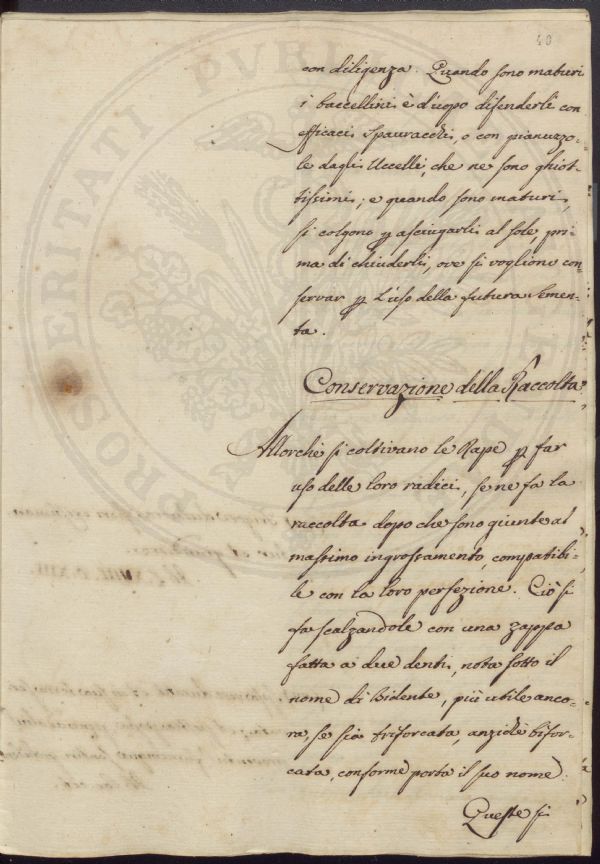 40
con diligenza. Quando sono maturi
i baccellini è d'uopo difenderli con
efficaci Spauracchi, o con pianuzzo-
le dagli Uccelli, che ne sono ghiot-
tissimi; e quando sono maturi,
si colgono p asciugarli al sole, pri-
ma di chiuderli, ove si vogliono con-
servar p l'uso della futura semen-
ta.
Conservazione della Raccolta.
Allorchè si coltivano le Rape p far
uso delle loro radici, se ne fa la
raccolta dopo che sono giunte al
massimo ingrossamento, compatibi-
le con la loro perfezione. Ciò si
fa scalzandole con una zappa
fatta a due denti, nota sotto il
nome di Bidente, più utile anco-
ra, se sia triforcata, anzichè bifor-
cata, conforme porta il suo nome.
Queste si